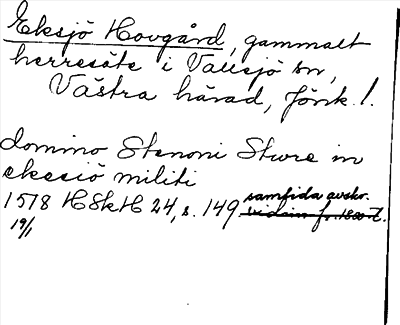 Eksjö Hovgård, gammalt
herresäte i Vallsjö sn,
Västra härad, Jönk. l.
domino Stenoni Sture in
ekesiö militi
1578 HSkH 24, s. 149 samtida avskr.
19/1